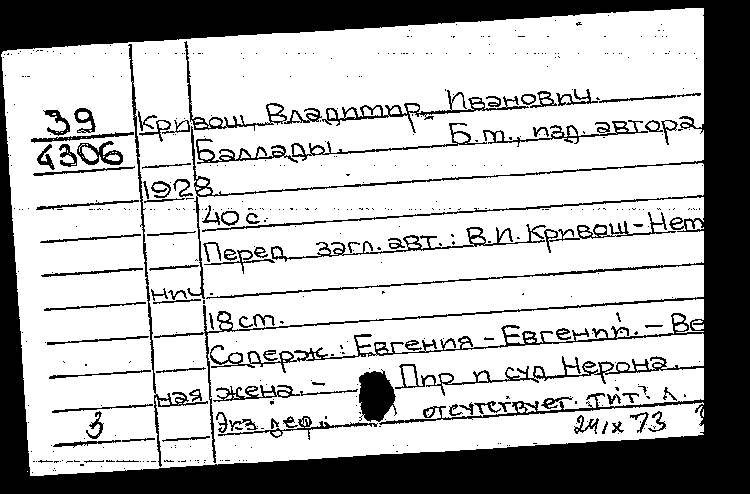 39 Кривош, Владимир Иванович.
4306 Баллады. Б.м., изд. автора,
1928.
40 с.
Перед загл. авт.: В.И. Кривош-Нем
нич.
18 см.
Содерж.: Евгения - Евгений. - Ве
ная жена. - Пир и суд Нерона.
3 Экз. деф.: отсутствует тит. л.
73